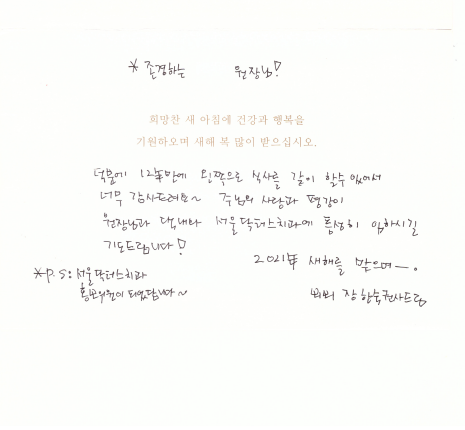 * 존경하는 원장님!
희망찬 새 아침에 건강과 행복을
기원하오며 새해 복 많이 받으십시오.
덕분에 12年만에 왼쪽으로 식사를 같이 할수 있어서
너무 감사드려요~ 주님의 사랑과 평강이
원장님과 댁내와 서울닥터스치과에 풍성히 임하시길
기도드립니다!
2021年 새해를 맞으며—.
*P.S: 서울닥터스치과
홍보위원이 되었답니다~
장한숙권사드림